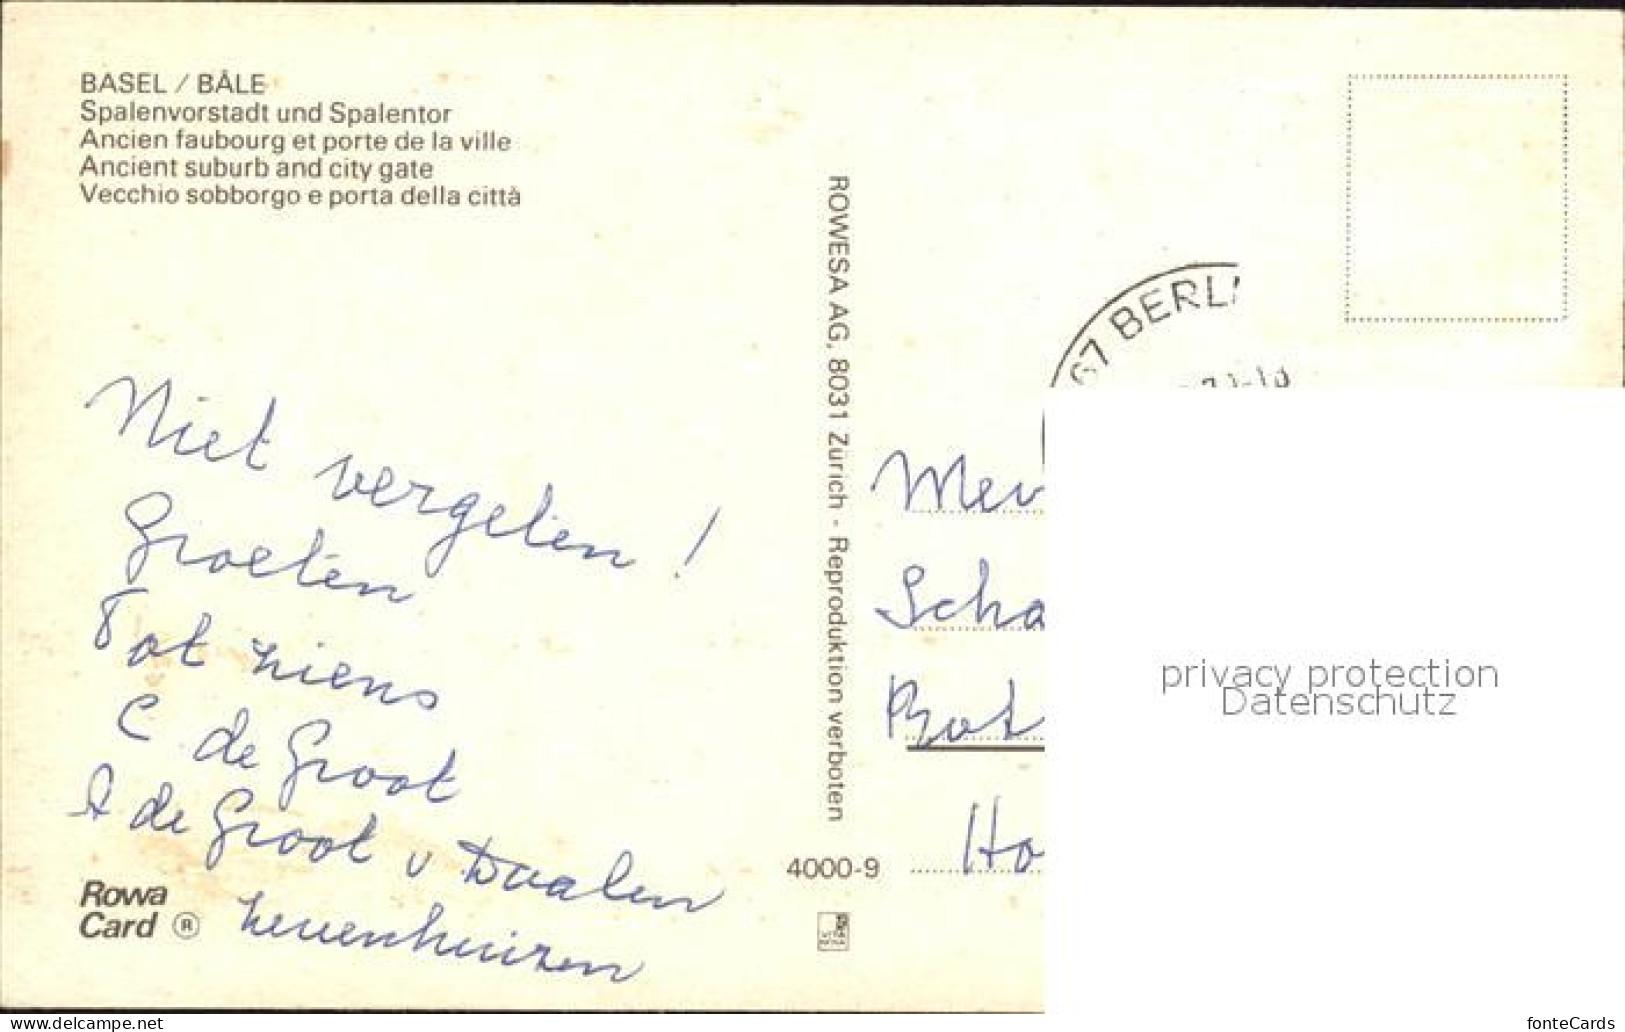 BASEL / BÂLE
Spalenvorstadt und Spalentor
Ancien faubourg et porte de la ville
Ancient suburb and city gate
Vecchio sobborgo e porta della città
Niet vergeten !
Groeten
Tot ziens
C de Groot
A de Groot v Daalen
Zevenhuizen
Rowa
Card ®
ROWESA AG, 8031 Zürich - Reproduktion verboten
4000-9
67 BERLI
Mev
Scha
Rot
Ho
privacy protection
Datenschutz
www.delcampe.net
fonteCards